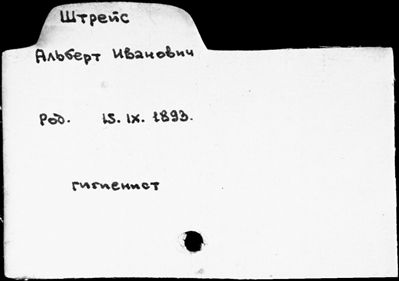 Штрейс
Альберт Иванович
Род. 15.IX.1893.
гигиенист